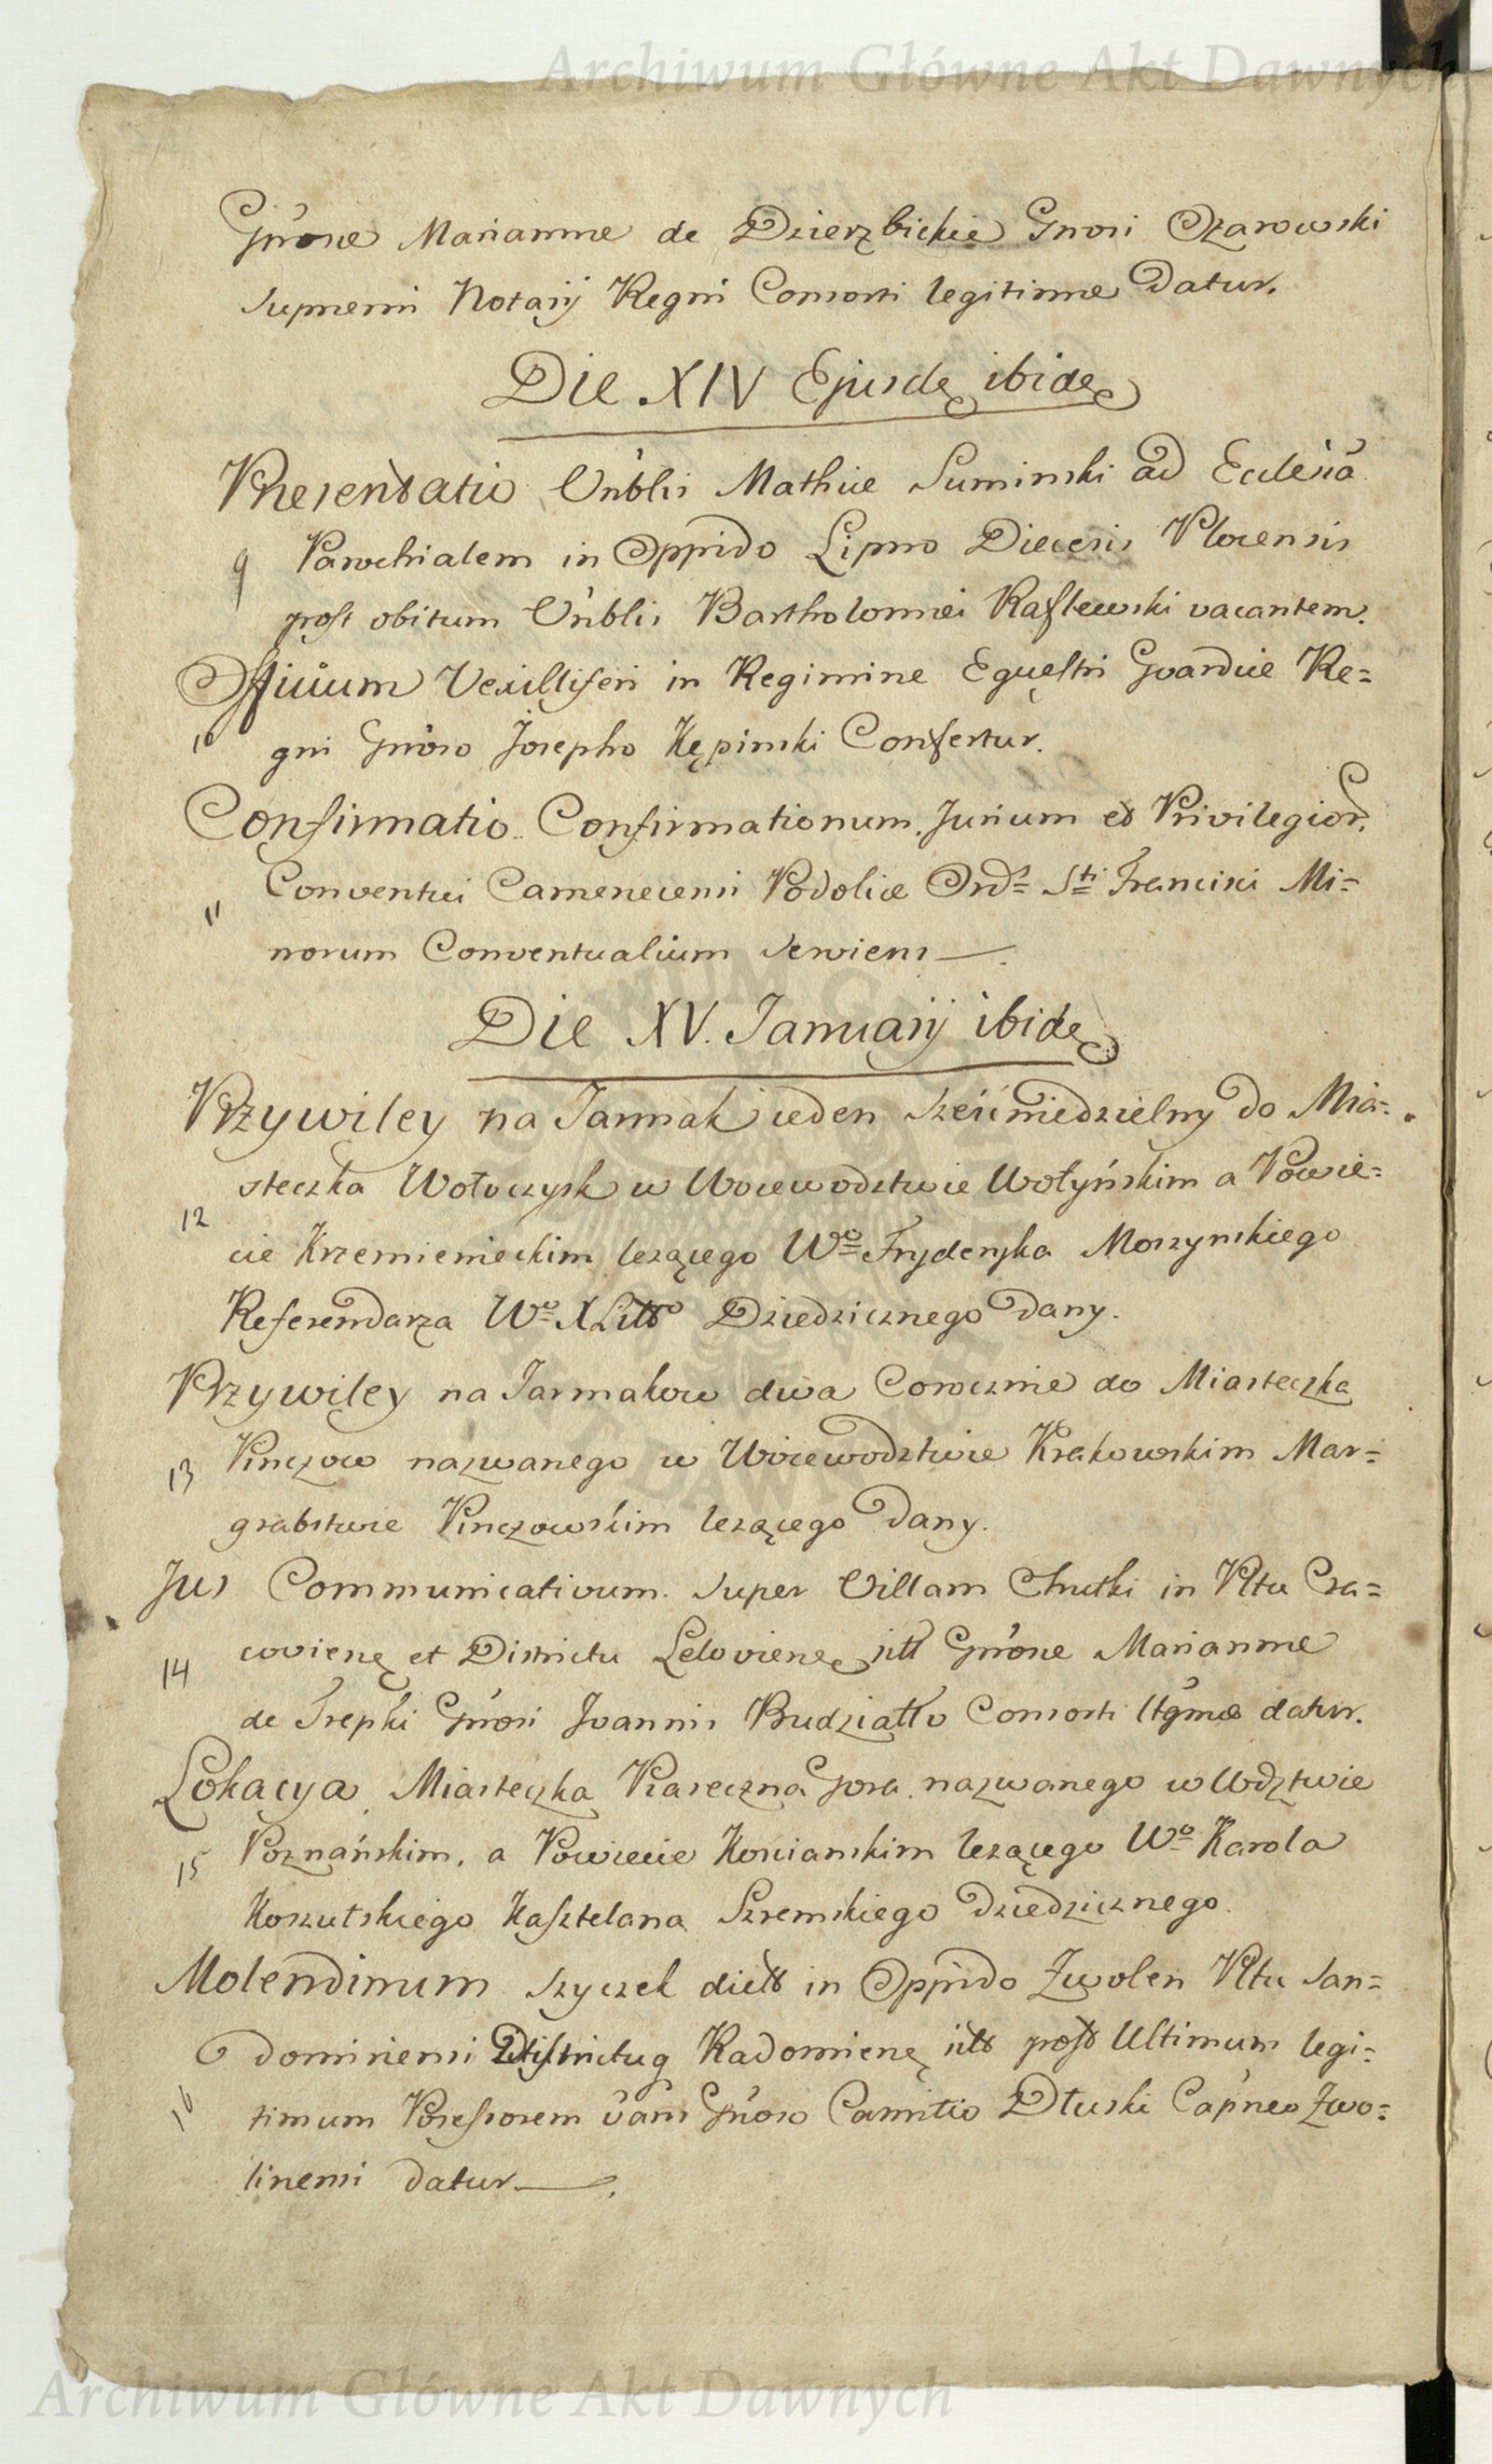 Archiwum Główne Akt Dawnych
Gnosæ Mariannæ de Dzierzbickie Gnosi Ożarowski
Supremi Notarij Regni Consorti legitimæ Datur.
Die XIV Ejusdę ibidę
Presentatio Vnblis Mathiæ Suminski ad Ecclesia
9 Parochialem in Oppido Lipno Diecesis Plocensis
post obitum Vnblis Bartholomei Raflewski vacantem.
Officium Vexilliferi in Regimine Equestri Gvardiæ Re=
10 gni Gnoso Josepho Kępinski Confertur.
Confirmatio Confirmationum Jurium et Privilegior.
Conventui Camenecensi Podoliæ Ord= Sti Francisci Mi=
11
norum Conventualium Serviens —.
Die XV. Januarij ibidę
Przywiley na Jarmak ieden sześćniedzielny do Mia=
steczka Wołoczysk w Woiewodztwie Wołyńskim a Powie=
12
cie Krzemienieckim leżącego Wo Fryderyka Moszynskiego
Referendarza Wo XLitto Dziedzicznego Dany.
Przywiley na Jarmakow dwa Corocznie do Miasteczka
13 Pinczow nazwanego w Woiewodztwie Krakowskim Mar=
grabstwie Pinczowskim leżącego Dany.
Jus Communicativum super Villam Chutki in Pltu Cra=
14 covienę et Districtu Lelovienę sitt Gnosæ Mariannæ
de Trepki Gnosi Joannis Budziatto Consorti ltgmæ datur.
Lokacya Miasteczka Piaseczna Gora nazwanego w Wdztwie
15 Poznańskim, a Powiecie Kosciańskim leżącego Wo Karola
Koszutskiego Kasztelana Szremskiego Dziedzicznego.
Molendinum Szyczek dictt in Oppido Zwolen Pltu San=
domiriensi Districtuq Radomienę sitt post Ultimum legi=
16 timum Possessorem Gnoso Camitio Dłuski Capneo Zwo=
linensi datur —.
Archiwum Główne Akt Dawnych